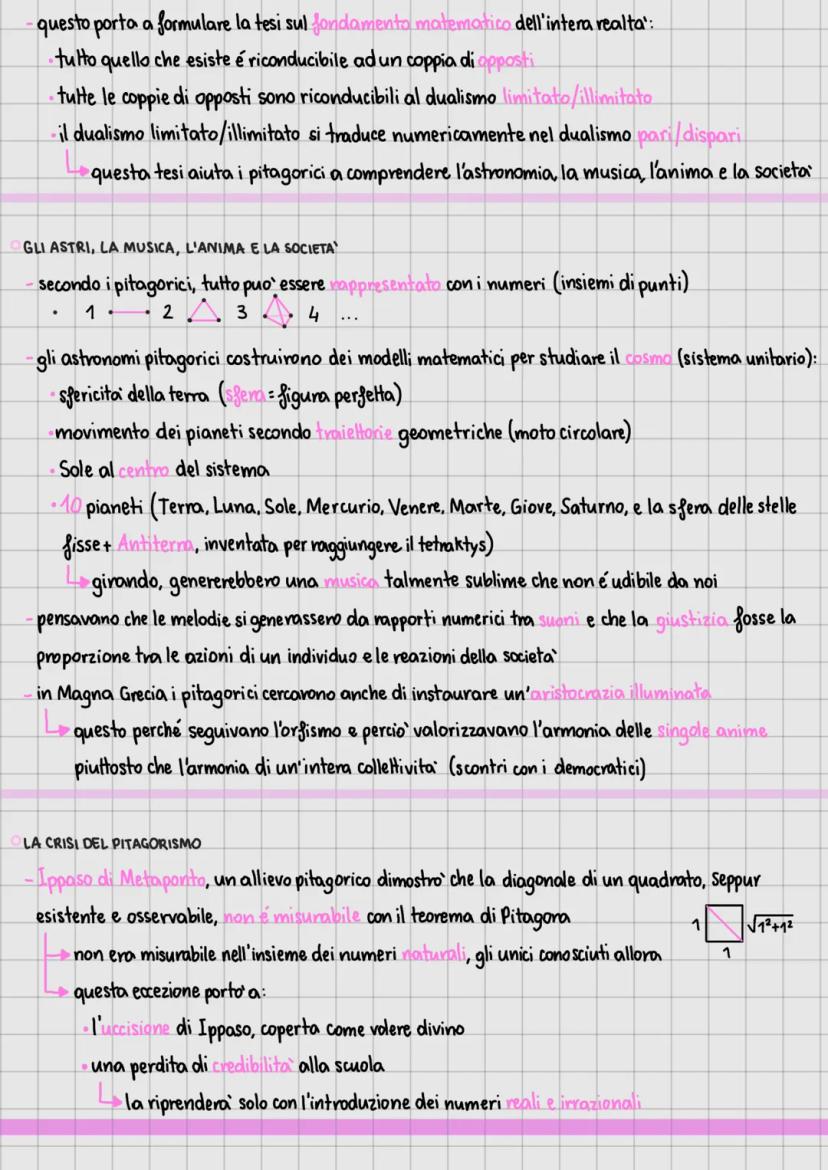 - questo porta a formulare la tesi sul fondamento matematico dell'intera realtà:
• tutto quello che esiste é riconducibile ad un coppia di opposti
• tutte le coppie di opposti sono riconducibili al dualismo limitato/illimitato
• il dualismo limitato/illimitato si traduce numericamente nel dualismo pari/dispari
questa tesi aiuta i pitagorici a comprendere l'astronomia, la musica, l'anima e la società
GLI ASTRI, LA MUSICA, L'ANIMA E LA SOCIETA'
- secondo i pitagorici, tutto può essere rappresentato con i numeri (insiemi di punti)
1 2 3 4 ...
- gli astronomi pitagorici costruirono dei modelli matematici per studiare il cosmo (sistema unitario):
• sfericità della terra (sfera = figura perfetta)
• movimento dei pianeti secondo traiettorie geometriche (moto circolare)
• Sole al centro del sistema
• 10 pianeti (Terra, Luna, Sole, Mercurio, Venere, Marte, Giove, Saturno, e la sfera delle stelle
fisse + Antiterra, inventata per raggiungere il tetraktys)
girando, genererebbero una musica talmente sublime che non é udibile da noi
- pensavano che le melodie si generassero da rapporti numerici tra suoni e che la giustizia fosse la
proporzione tra le azioni di un individuo e le reazioni della società
- in Magna Grecia i pitagorici cercarono anche di instaurare un'aristocrazia illuminata
questo perché seguivano l'orfismo e perciò valorizzavano l'armonia delle singole anime
piuttosto che l'armonia di un'intera collettività (scontri con i democratici)
LA CRISI DEL PITAGORISMO
- Ippaso di Metaponto, un allievo pitagorico dimostrò che la diagonale di un quadrato, seppur
esistente e osservabile, non é misurabile con il teorema di Pitagora
1 √1²+1²
1
non era misurabile nell'insieme dei numeri naturali, gli unici conosciuti allora
questa eccezione portò a:
• l'uccisione di Ippaso, coperta come volere divino
• una perdita di credibilità alla scuola
la riprenderà solo con l'introduzione dei numeri reali e irrazionali